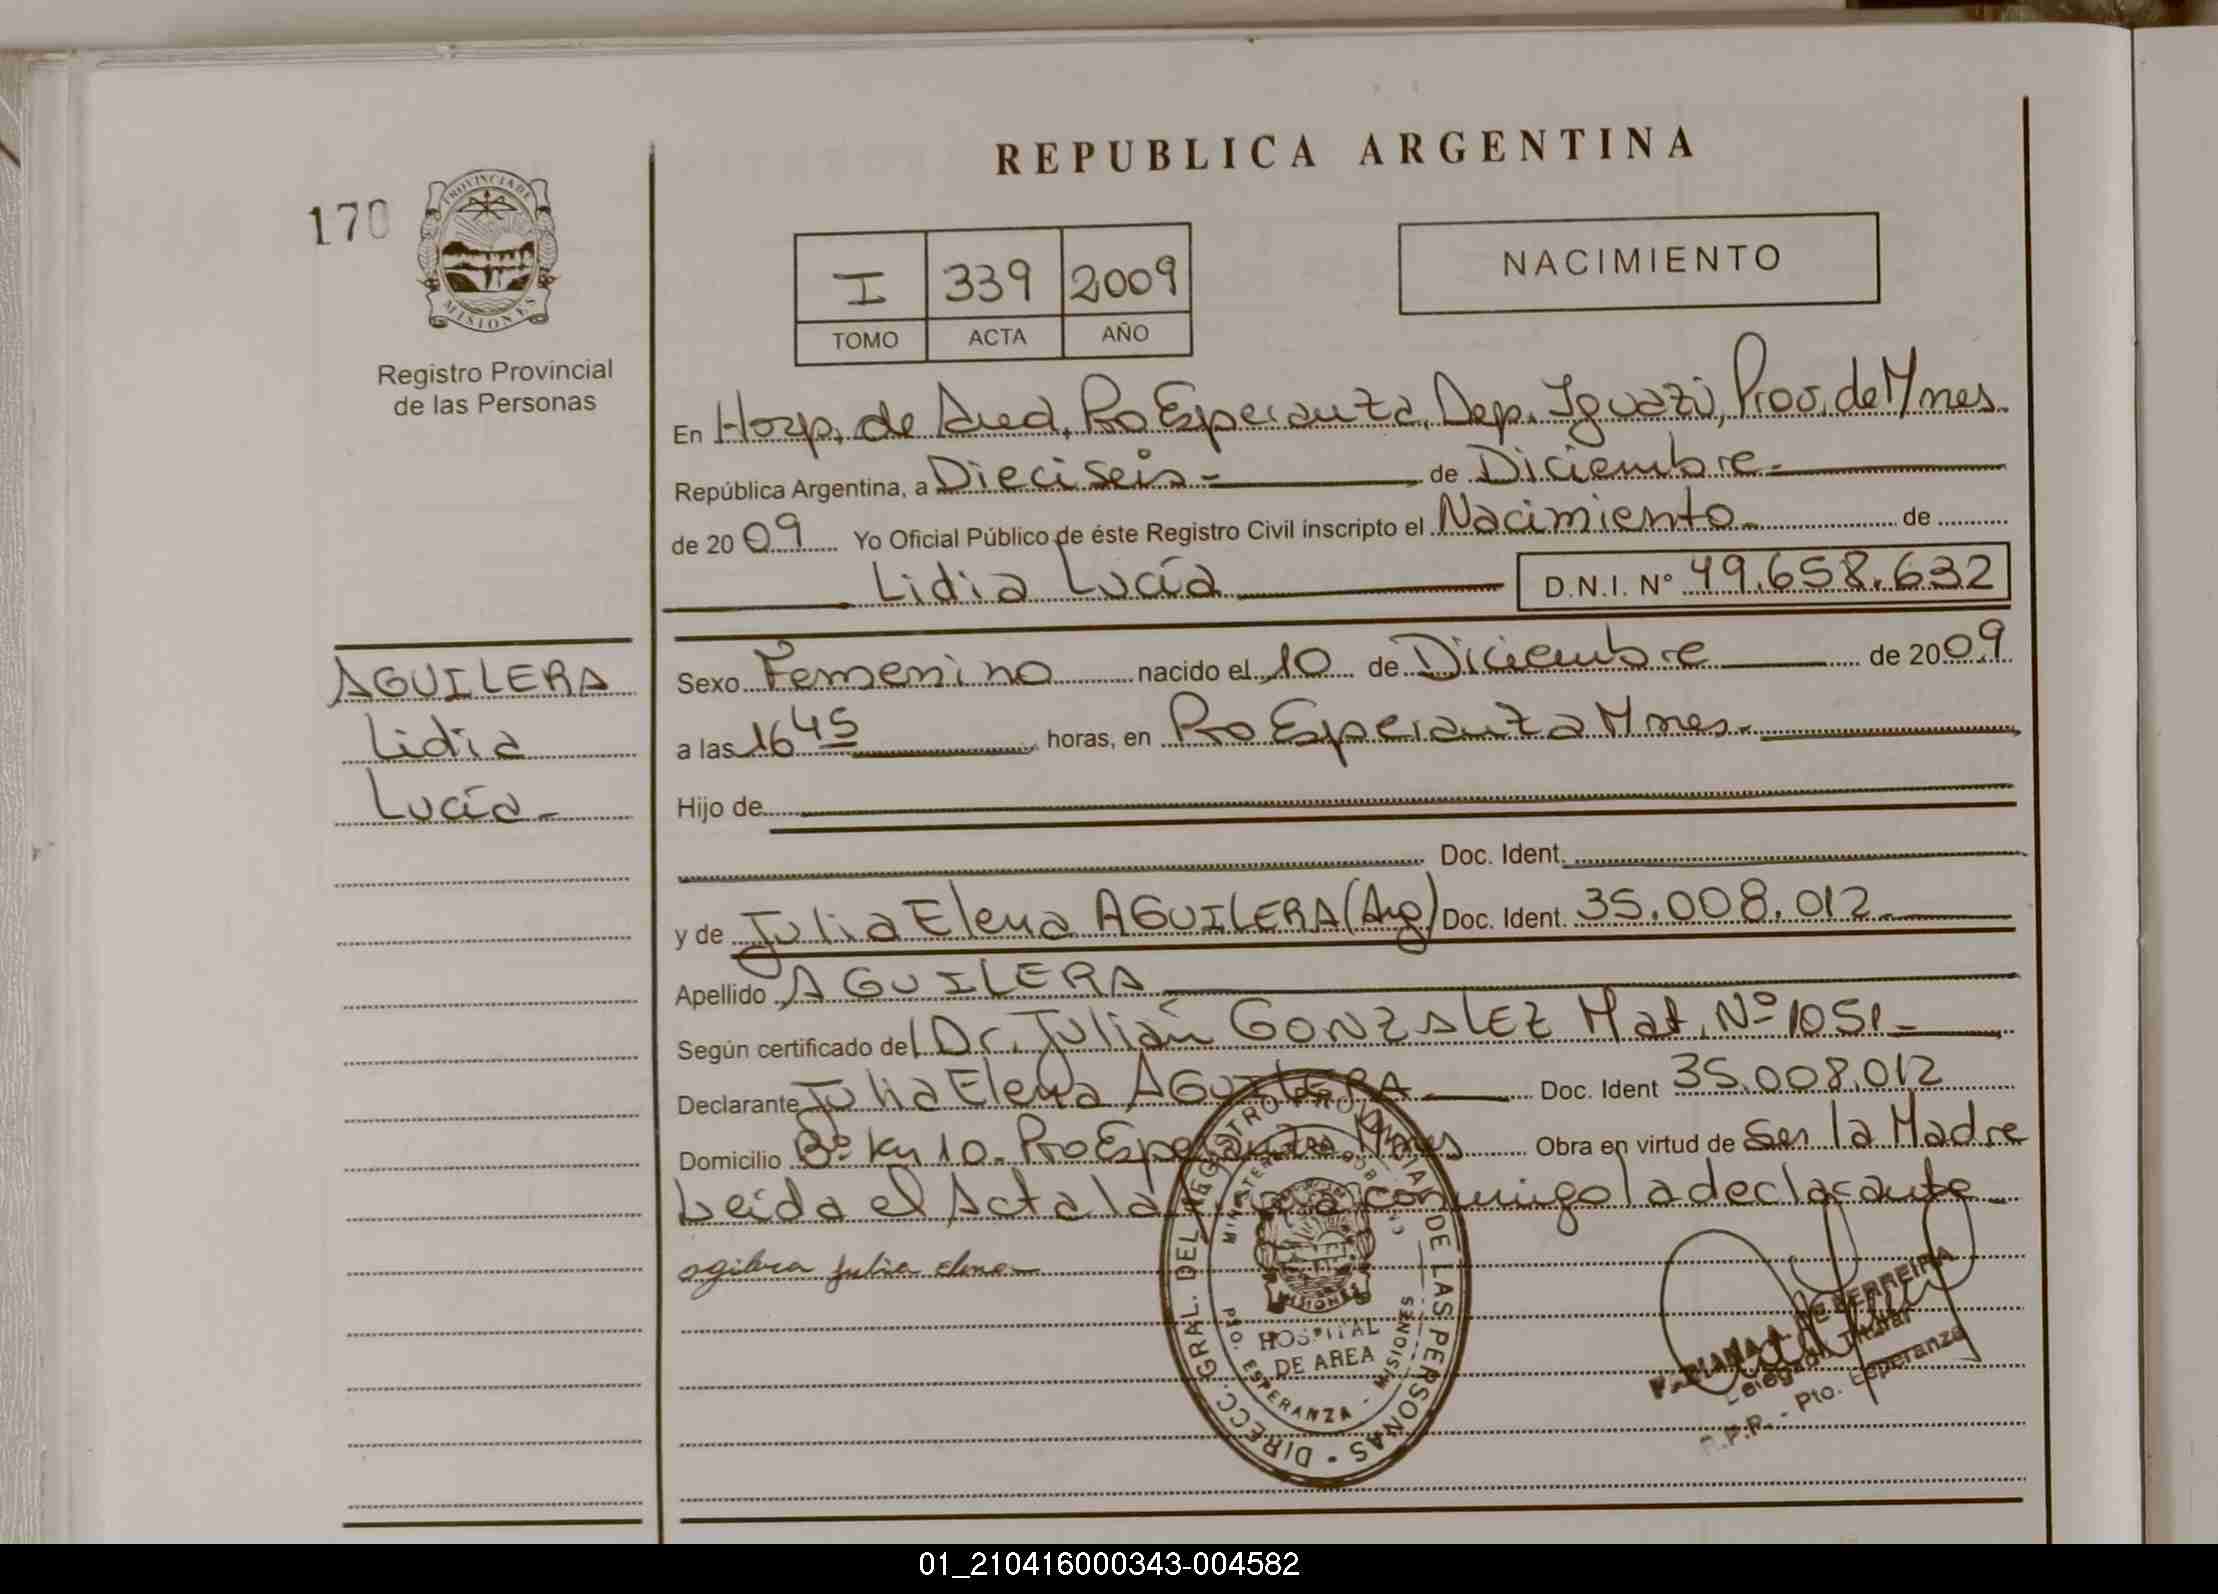 REPUBLICA ARGENTINA
170
PROVINCIA DE
MISIONES
Registro Provincial
de las Personas
I 339 2009
TOMO ACTA AÑO
NACIMIENTO
En Hosp. de Area, Pto Esperanza, Dep. Iguazú, Prov. de Mnes.
República Argentina, a Dieciseis - de Diciembre -
de 2009 Yo Oficial Público de éste Registro Civil inscripto el Nacimiento - de
Lidia Lucía D.N.I. Nº 49.658.632
AGUILERA
Lidia
Lucía -
Sexo Femenino nacido el 10 de Diciembre de 2009
a las 16 45 horas, en Pto Esperanza Mnes. -
Hijo de
Doc. Ident.
y de Julia Elena AGUILERA (Arg) Doc. Ident. 35.008.012 -
Apellido AGUILERA
Según certificado del Dr. Julián GONZALEZ Mat. Nº 1051 -
Declarante Julia Elena AGUILERA Doc. Ident 35.008.012
Domicilio Bº Km 10 - Pto Esperanza Mnes Obra en virtud de Ser la Madre
Leida el Acta la firma conmigo la declarante -
agilera julia elena
DIRECC. GRAL. DEL REGISTRO PROVINCIAL DE LAS PERSONAS -
MISIONES
HOSPITAL
DE AREA
PTO. ESPERANZA - MISIONES
DE FERREIRA
Delegada Titular
R.P.P. - Pto. Esperanza
01_210416000343-004582